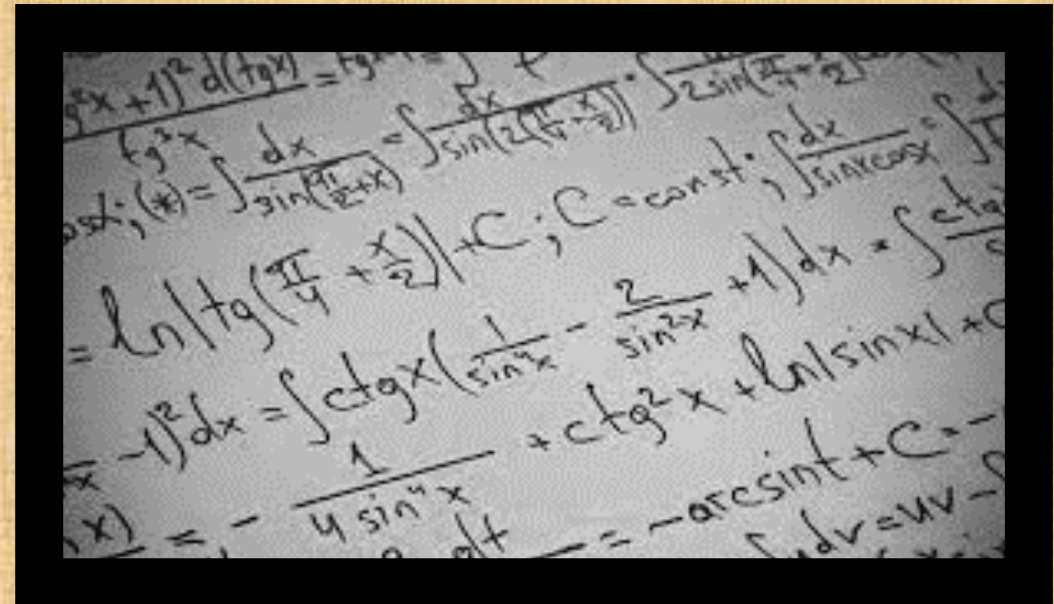 g²x+1)² d(tgx) / tg³x =
osx; (*) = ∫ dx / sin(π/2+x) = ∫ dx / sin(2(π/4+x/2)) = ∫ / 2sin(π/4+x/2)
= ln|tg(π/4+x/2)|+C; C=const; ∫ dx / sinxcosx = ∫
-1)²dx = ∫ctgx(1/sin⁴x - 2/sin²x +1)dx = ∫
x) = - 1/4sin⁴x + ctg²x + ln|sinx| + C
dt = -arcsint+C = -
∫udv=uv-∫